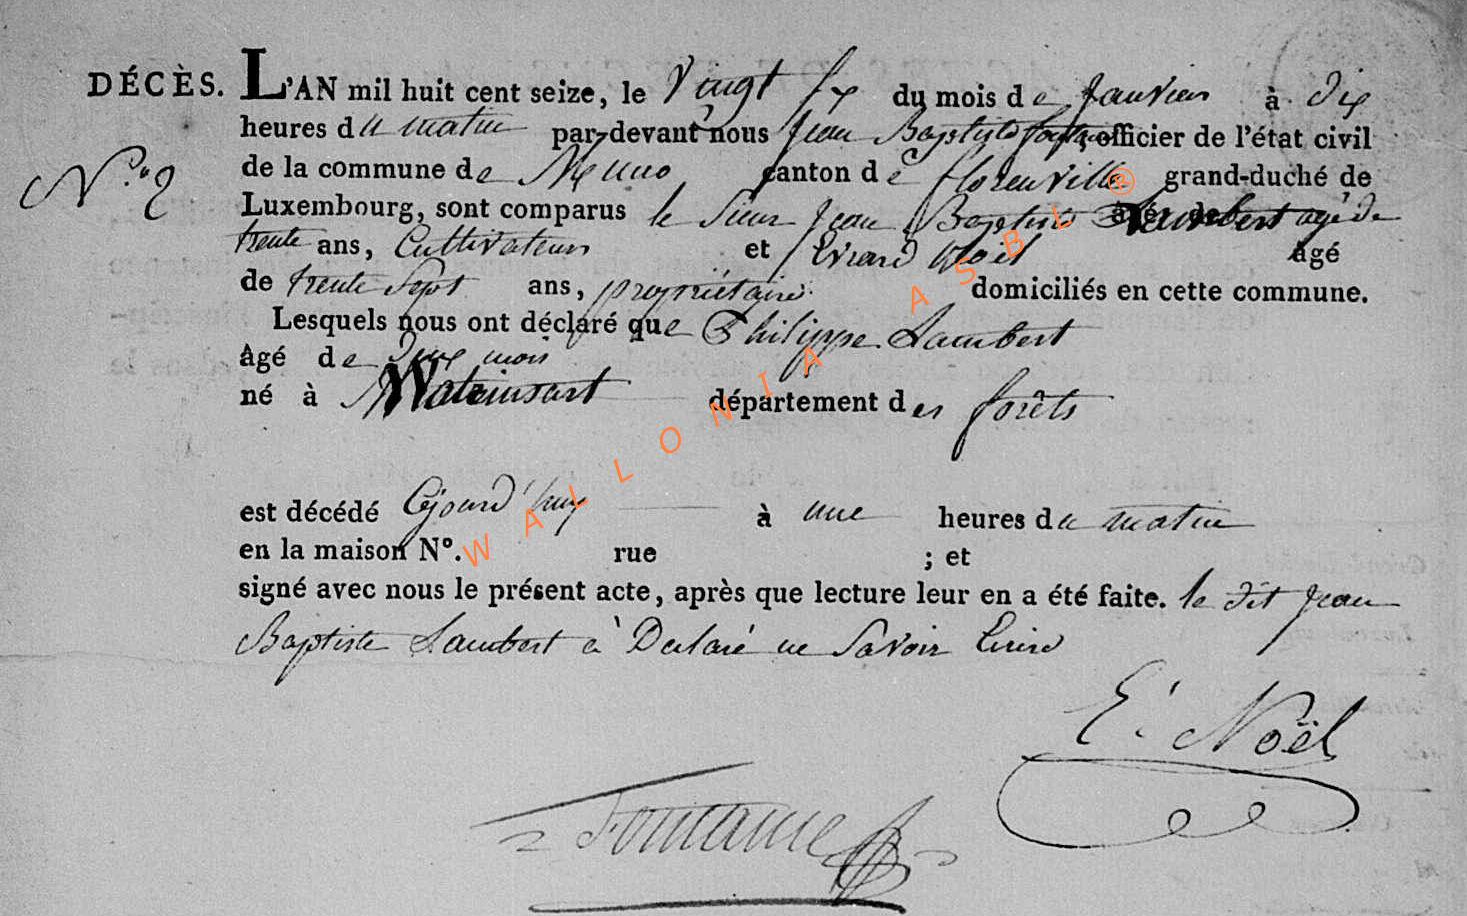 DÉCÈS. L'AN mil huit cent seize, le Vingt Six du mois de Janvier à Dix
heures du matin par-devant nous Jean Baptiste fontaine, officier de l'état civil
N.o 2 de la commune de Muno canton de florenville grand-duché de
Luxembourg, sont comparus le Sieur Jean Baptiste Lambert agé de
trente ans, Cultivateur et Evrard Noël âgé
de trente Sept ans, propriétaire domiciliés en cette commune.
Lesquels nous ont déclaré que Philippe Lambert
âgé de mois
né à Watrinsart département des forêts
est décédé Cejourd'huy à une heures du matin
en la maison N°. rue ; et
signé avec nous le présent acte, après que lecture leur en a été faite. le dit Jean
Baptiste Lambert à Déclaré ne Savoir Ecrire
E. Noël
Fontaine
WALLONIA ASBL ®